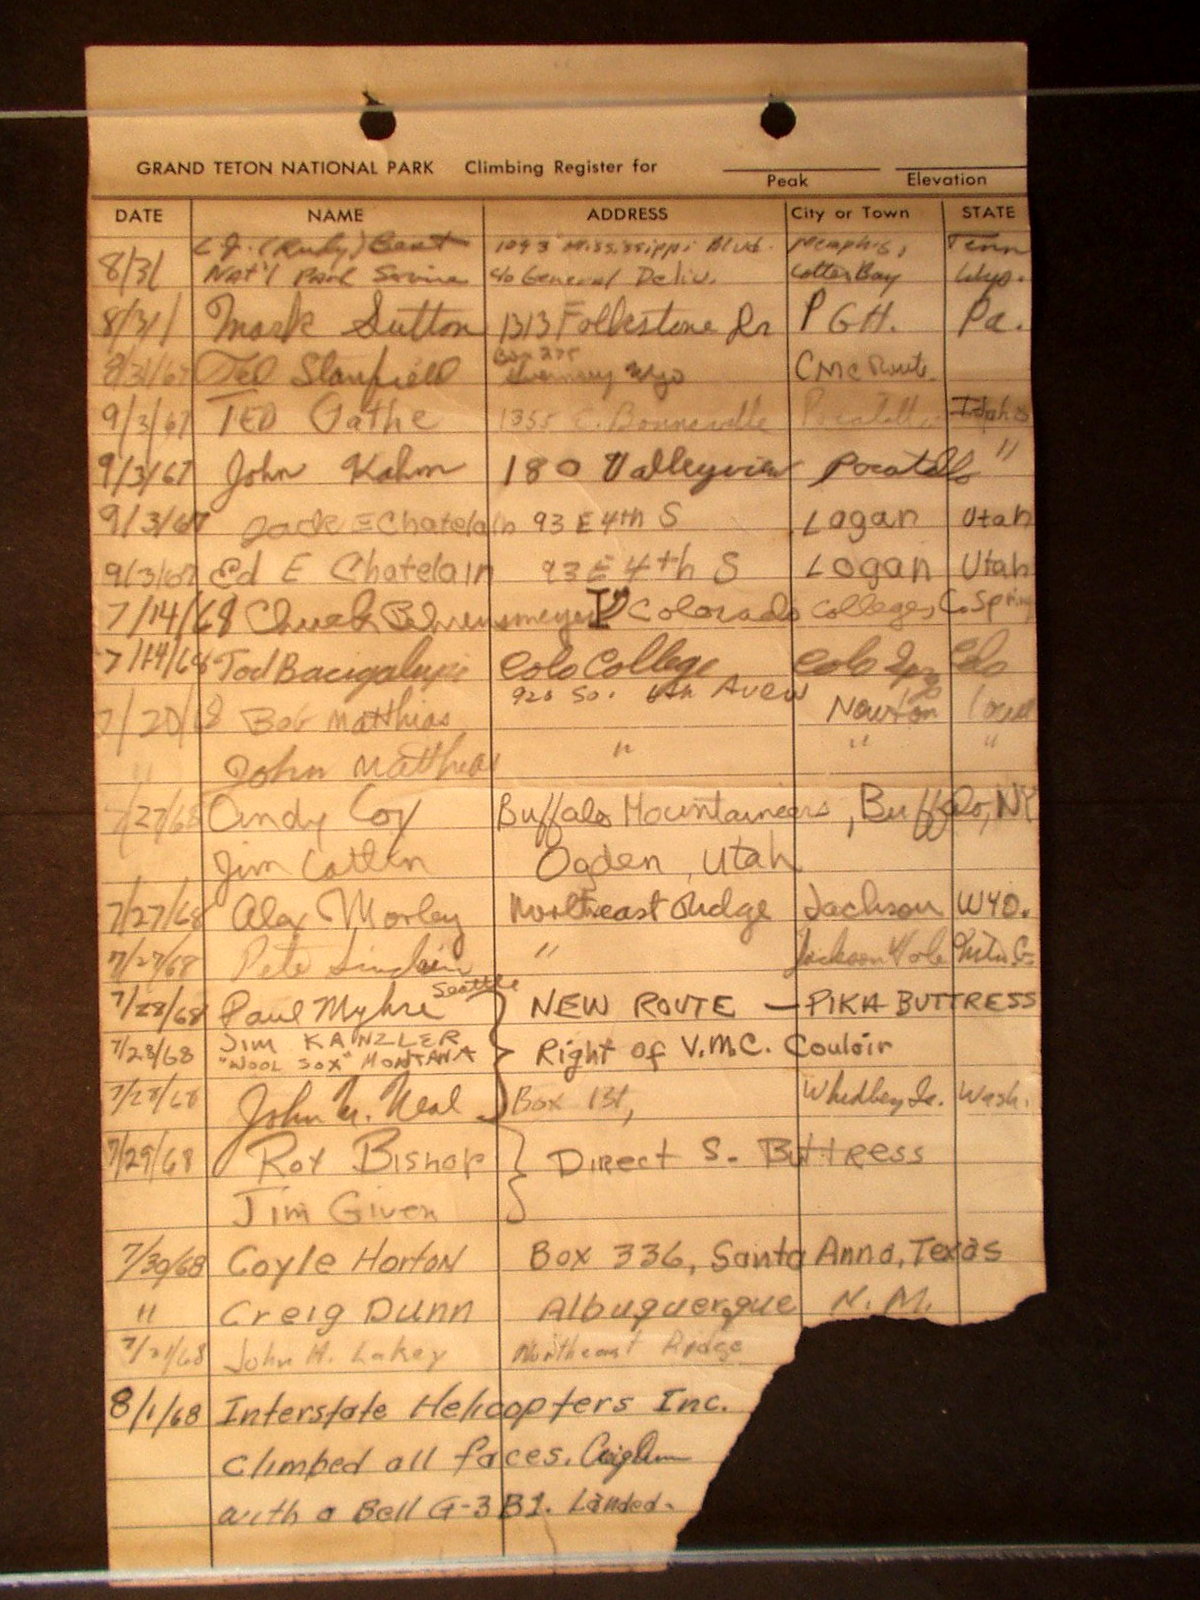 GRAND TETON NATIONAL PARK Climbing Register for
Peak Elevation
DATE NAME ADDRESS City or Town STATE
C.J. (Ruby) 1093 Mississippi Blvd. Memphis, Tenn
8/31 Nat'l Park Service c/o General Deliv. Colter Bay Wyo.
8/31 Mark Sutton 1313 Folkestone Dr PGH. Pa.
8/31/67 Ted Stanfield Box 275 Wyo CMC Route.
9/3/67 TED Gathe 1355 E. Bonneville Pocatello Idaho
9/3/67 John Kahm 180 Valleyview Pocatello "
9/3/67 Jack E Chatelain 93 E 4th S Logan Utah
9/3/67 Ed E Chatelain 93 E 4th S Logan Utah
7/14/68 Chuck Behrensmeyer Colorado College, C. Spring
7/14/68 Tod Bacigalupi Colo College Colo Spg Colo
7/20/68 Bob Matthias 920 So. 6th Avew Newton Iowa
" John Matthias " " "
7/27/68 Andy Coy Buffalo Mountaineers, Buffalo, NY
Jim Catlin Ogden, Utah
7/27/68 Alex Morley Northeast Ridge Jackson WYO.
7/27/68 Pete Sinclair " Jackson Hole
7/28/68 Paul Myhre Seattle } NEW ROUTE — PIKA BUTTRESS
7/28/68 JIM KANZLER "WOOL SOX" MONTANA Right of V.M.C. Couloir
7/28/68 John M. Neal Box 131, Whidbey Is. Wash.
7/29/68 Roy Bishop } Direct S. Buttress
Jim Given
7/30/68 Coyle Horton Box 336, Santa Anna, Texas
" Creig Dunn Albuquerque N.M.
7/31/68 John H. Lakey Northeast Ridge
8/1/68 Interstate Helicopters Inc.
climbed all faces.
with a Bell G-3B1. Landed.